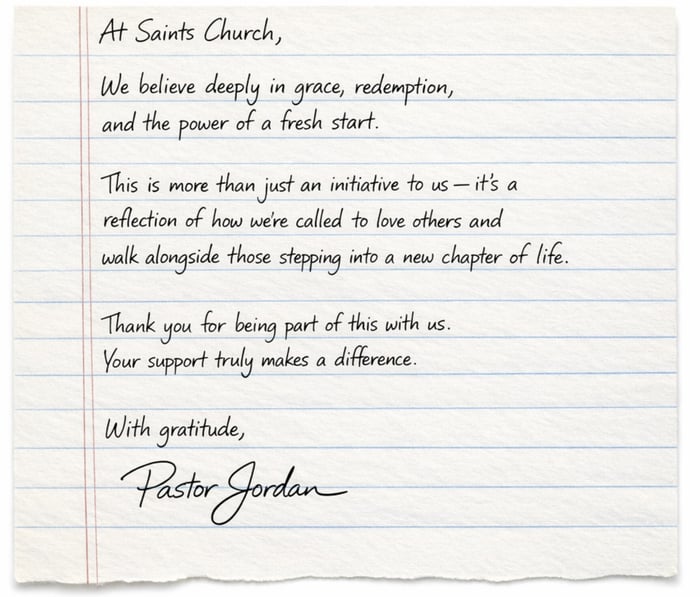 At Saints Church,
We believe deeply in grace, redemption,
and the power of a fresh start.
This is more than just an initiative to us — it's a
reflection of how we're called to love others and
walk alongside those stepping into a new chapter of life.
Thank you for being part of this with us.
Your support truly makes a difference.
With gratitude,
Pastor Jordan